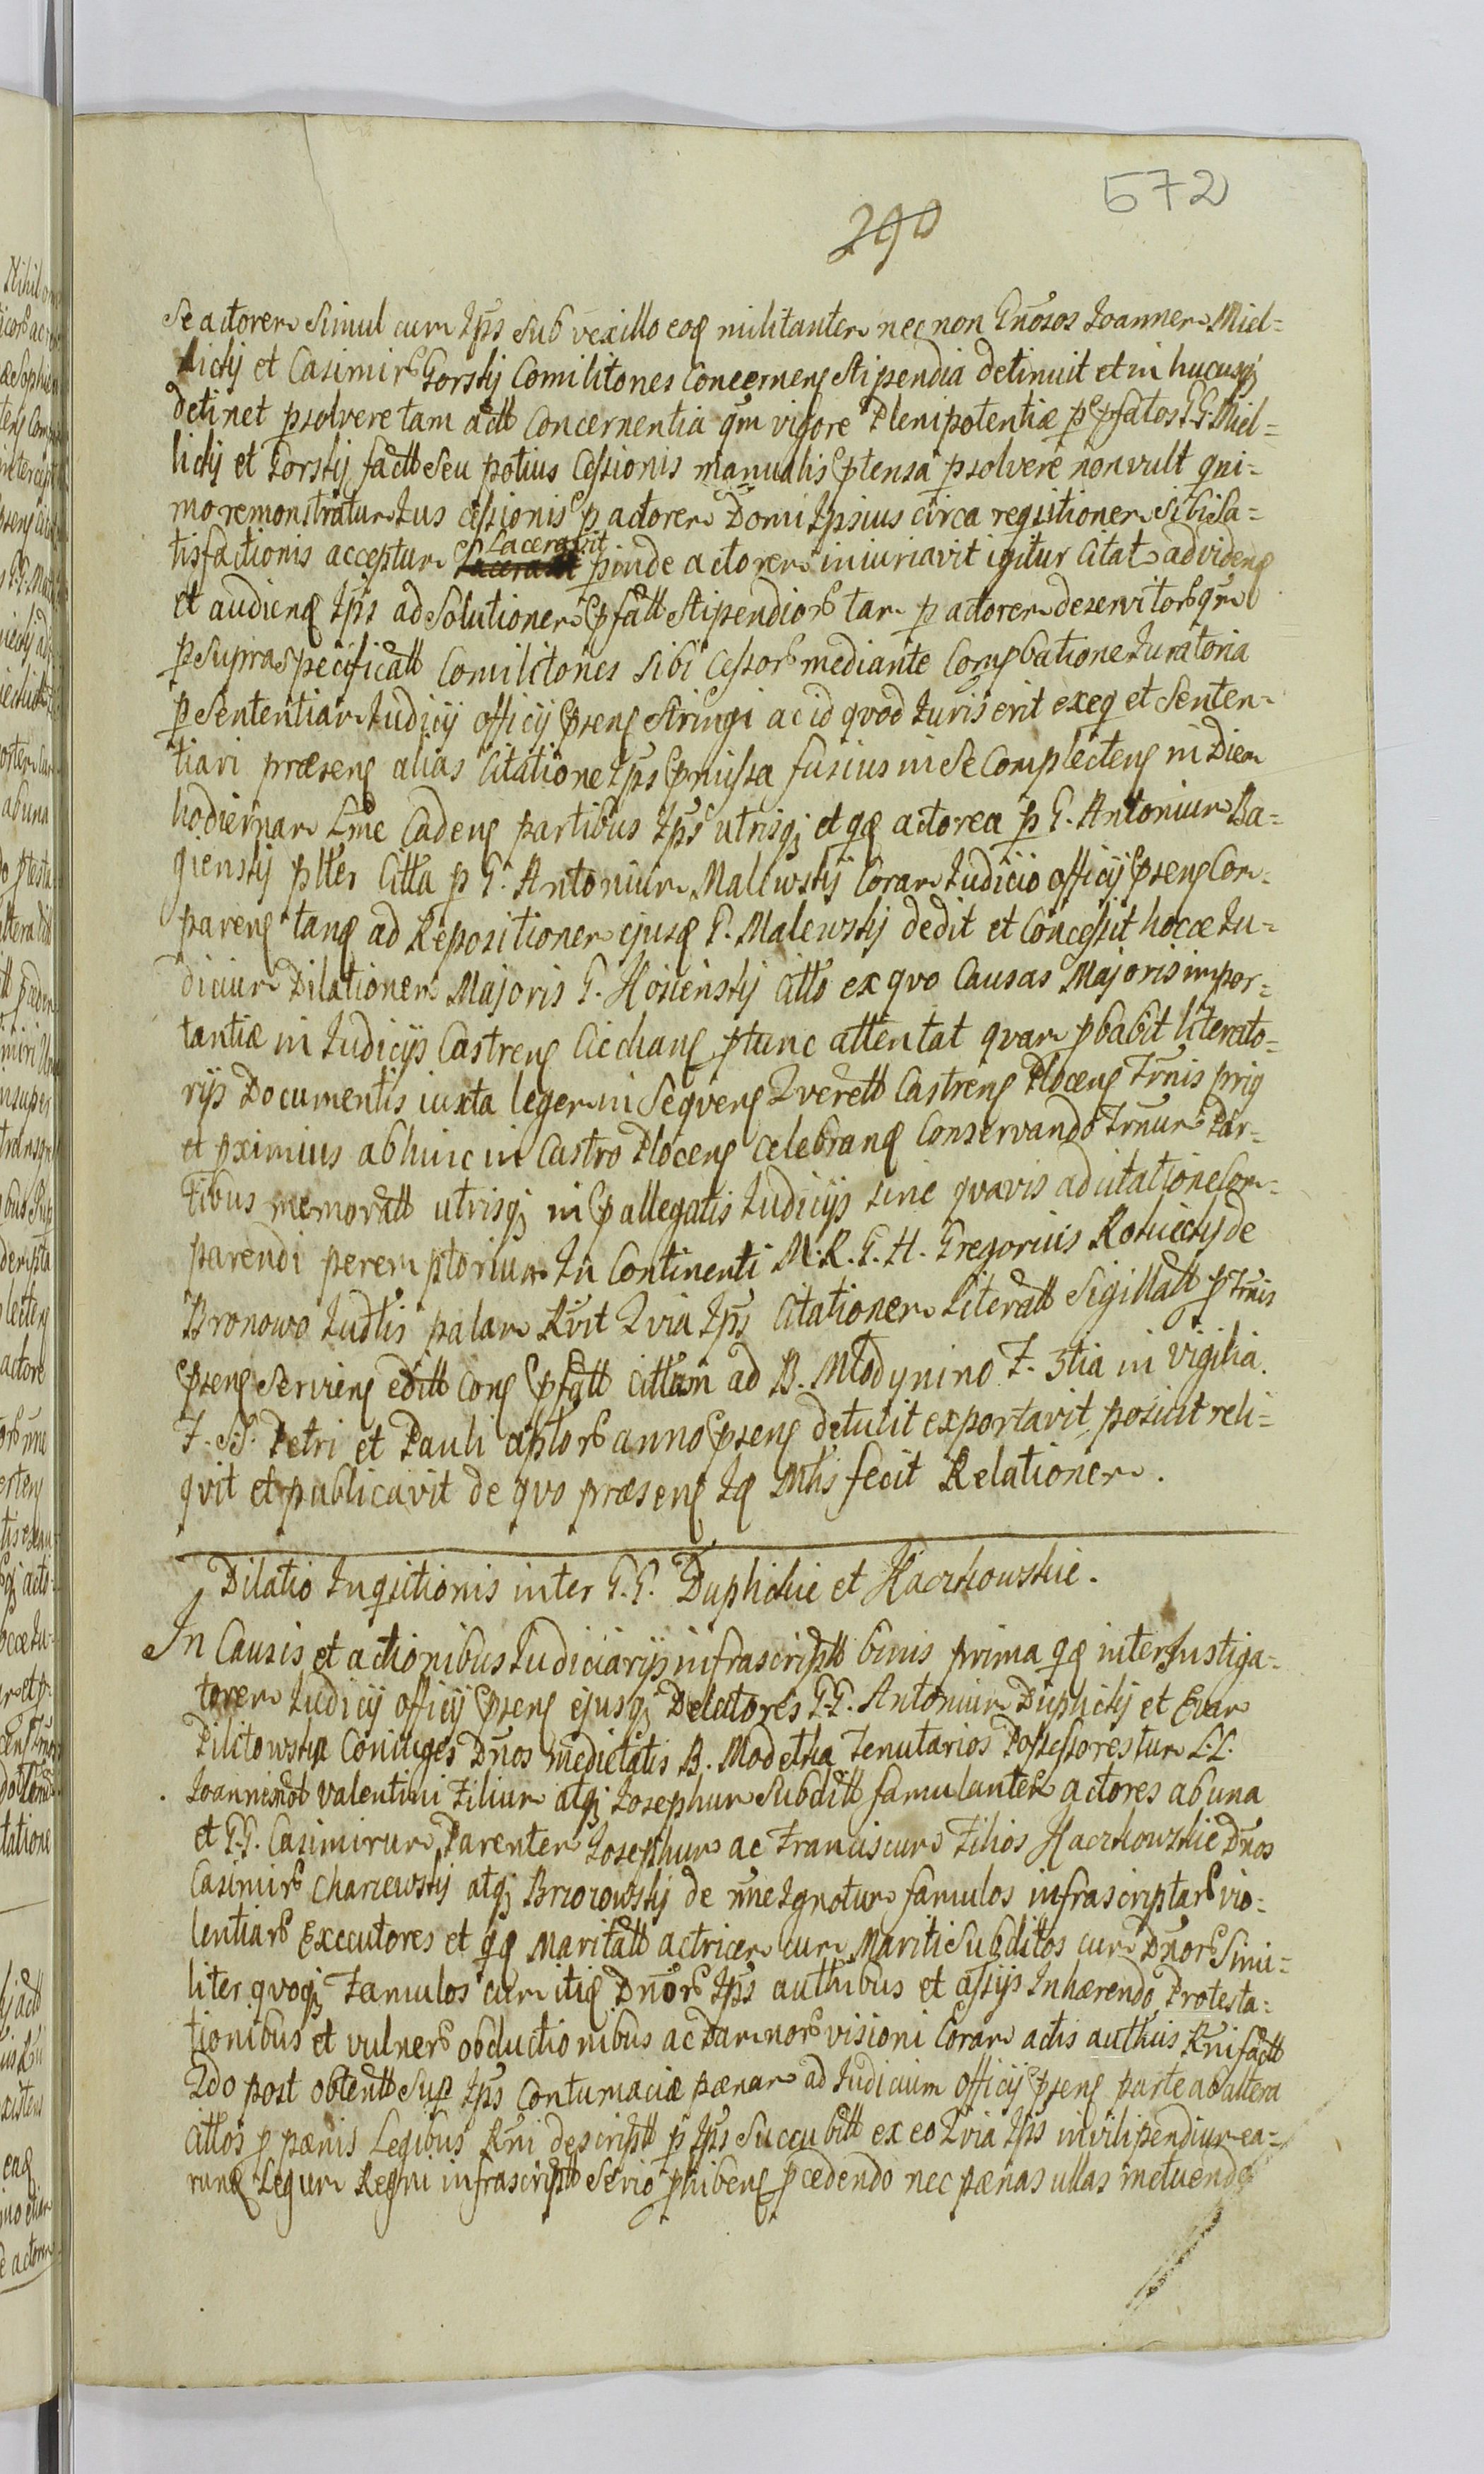 572
290
se actorem simul cum Ips sub vexillo eoq militantem nec non Gnosos Joannem Miel=
lickj et Casimirum Gorskj Comilitones Concernens Stipendia detinuit et in hucusq;
detinet psolvere tam actt Concernentia qm vigore Plenipotentiæ p pfatos G.G. Miel=
lickj et Gorskj factt seu potius Cessionis manualis ptensa psolvere non vult qni=
mo remonstratum Jus cessionis p actorem Domi Ipsius circa reqsitionem sibi Sa=
tisfactionis acceptum Laceravit pinde actorem iniuriavit igitur Citat ad videnq
et audienq Ipš ad Solutionem pfatt Stipendior tam p actorem deservitor qm
p supra specificatt Comilitones sibi Cessor mediante Compbatione Juratoria
p Sententiam Judicij officij psenq Stringi ac id quod Juris erit exeq et Senten=
tiari præsenq alias Citatione Ipš pmissa fusius in se Complectenq in Diem
hodiernam Lme Cadenq partibus Ipš utrisq; et qq actorea p G. Antonium Ba=
gienskj ptter Citta p G. Antonium Malewskj Coram Judicio officij psenq Com=
parenq tanq ad Repositionem ejusq G. Malewskj dedit et Concessit hocce Ju=
dicium Dilationem Majoris G. Hosienskj Citto ex quo Causas Majoris impor=
tantiæ in Judicijs Castrenq Ciechanq ptunc attentat quam pbabit literato=
rijs Documentis iuxta legem in Sequenq Querell Castrenq Plocenq Trnis prig
et pximius abhinc in Castro Plocenq celebranq Conservando Trnum Par=
tibus memoratt utrisq; in p allegatis Judicijs sine quavis adcitatione Com=
parendi peremptorium In Continenti M.R.G.H. Gregorius Rokickj de
Bronowo Judlis palam Rvit Quia Ipš Citationem Literatt Sigillatt p Trnis
psenq Servienq editt Conq pfatt cittam ad B. Młodynino F. 3tia in vigilia.
F. S.S. Petri et Pauli aptor anno psenq detulit exportavit posuit reli=
qvit et publicavit de quo præsenq Iq Mtis fecit Relationem.
Dilatio Inqsitionis inter G.G. Duplickie et Kaczkowskie.
In Causis et actionibus Judiciarijs infrascriptt binis prima qq inter Instiga=
torem Judicij officij psenq ejusq; Delatores G.G. Antonium Duplickj et Evam
Pilitowska Coniuges Dnos medietatis B. Modetka Tenutarios Possessores tum L.L.
Joannem Valentini Filium atq; Josephum Subditt famulantes actores ab una
et G.G. Casimirum Parentem Josephum ac Franciscum Filios Kaczkowskie Dnos
Casimir Charzewskj atq; Brzozowskj de nne Ignotum famulos infrascriptar vio=
lentiar Executores et qq Maritatt actricem cum Mariti Subditos cum Dnor Simi=
liter quoq; Famulos cum itiq Dnor Ipš authibus et assijs Inhærendo Protesta=
tionibus et vulner obductionibus ac Damnor visioni Coram actis authiis Rni factt
2do post obtentt Sup Ipš Contumaciæ pænam ad Judicium officij psenq parte ab altera
cittos p pænis Legibus Rni descriptt p Ipš Succubitt ex eo Quia Ipš in vilipendium ea=
rumq Legum Regni infrascriptt serio phibenq pcedendo nec pænas ullas metuendo